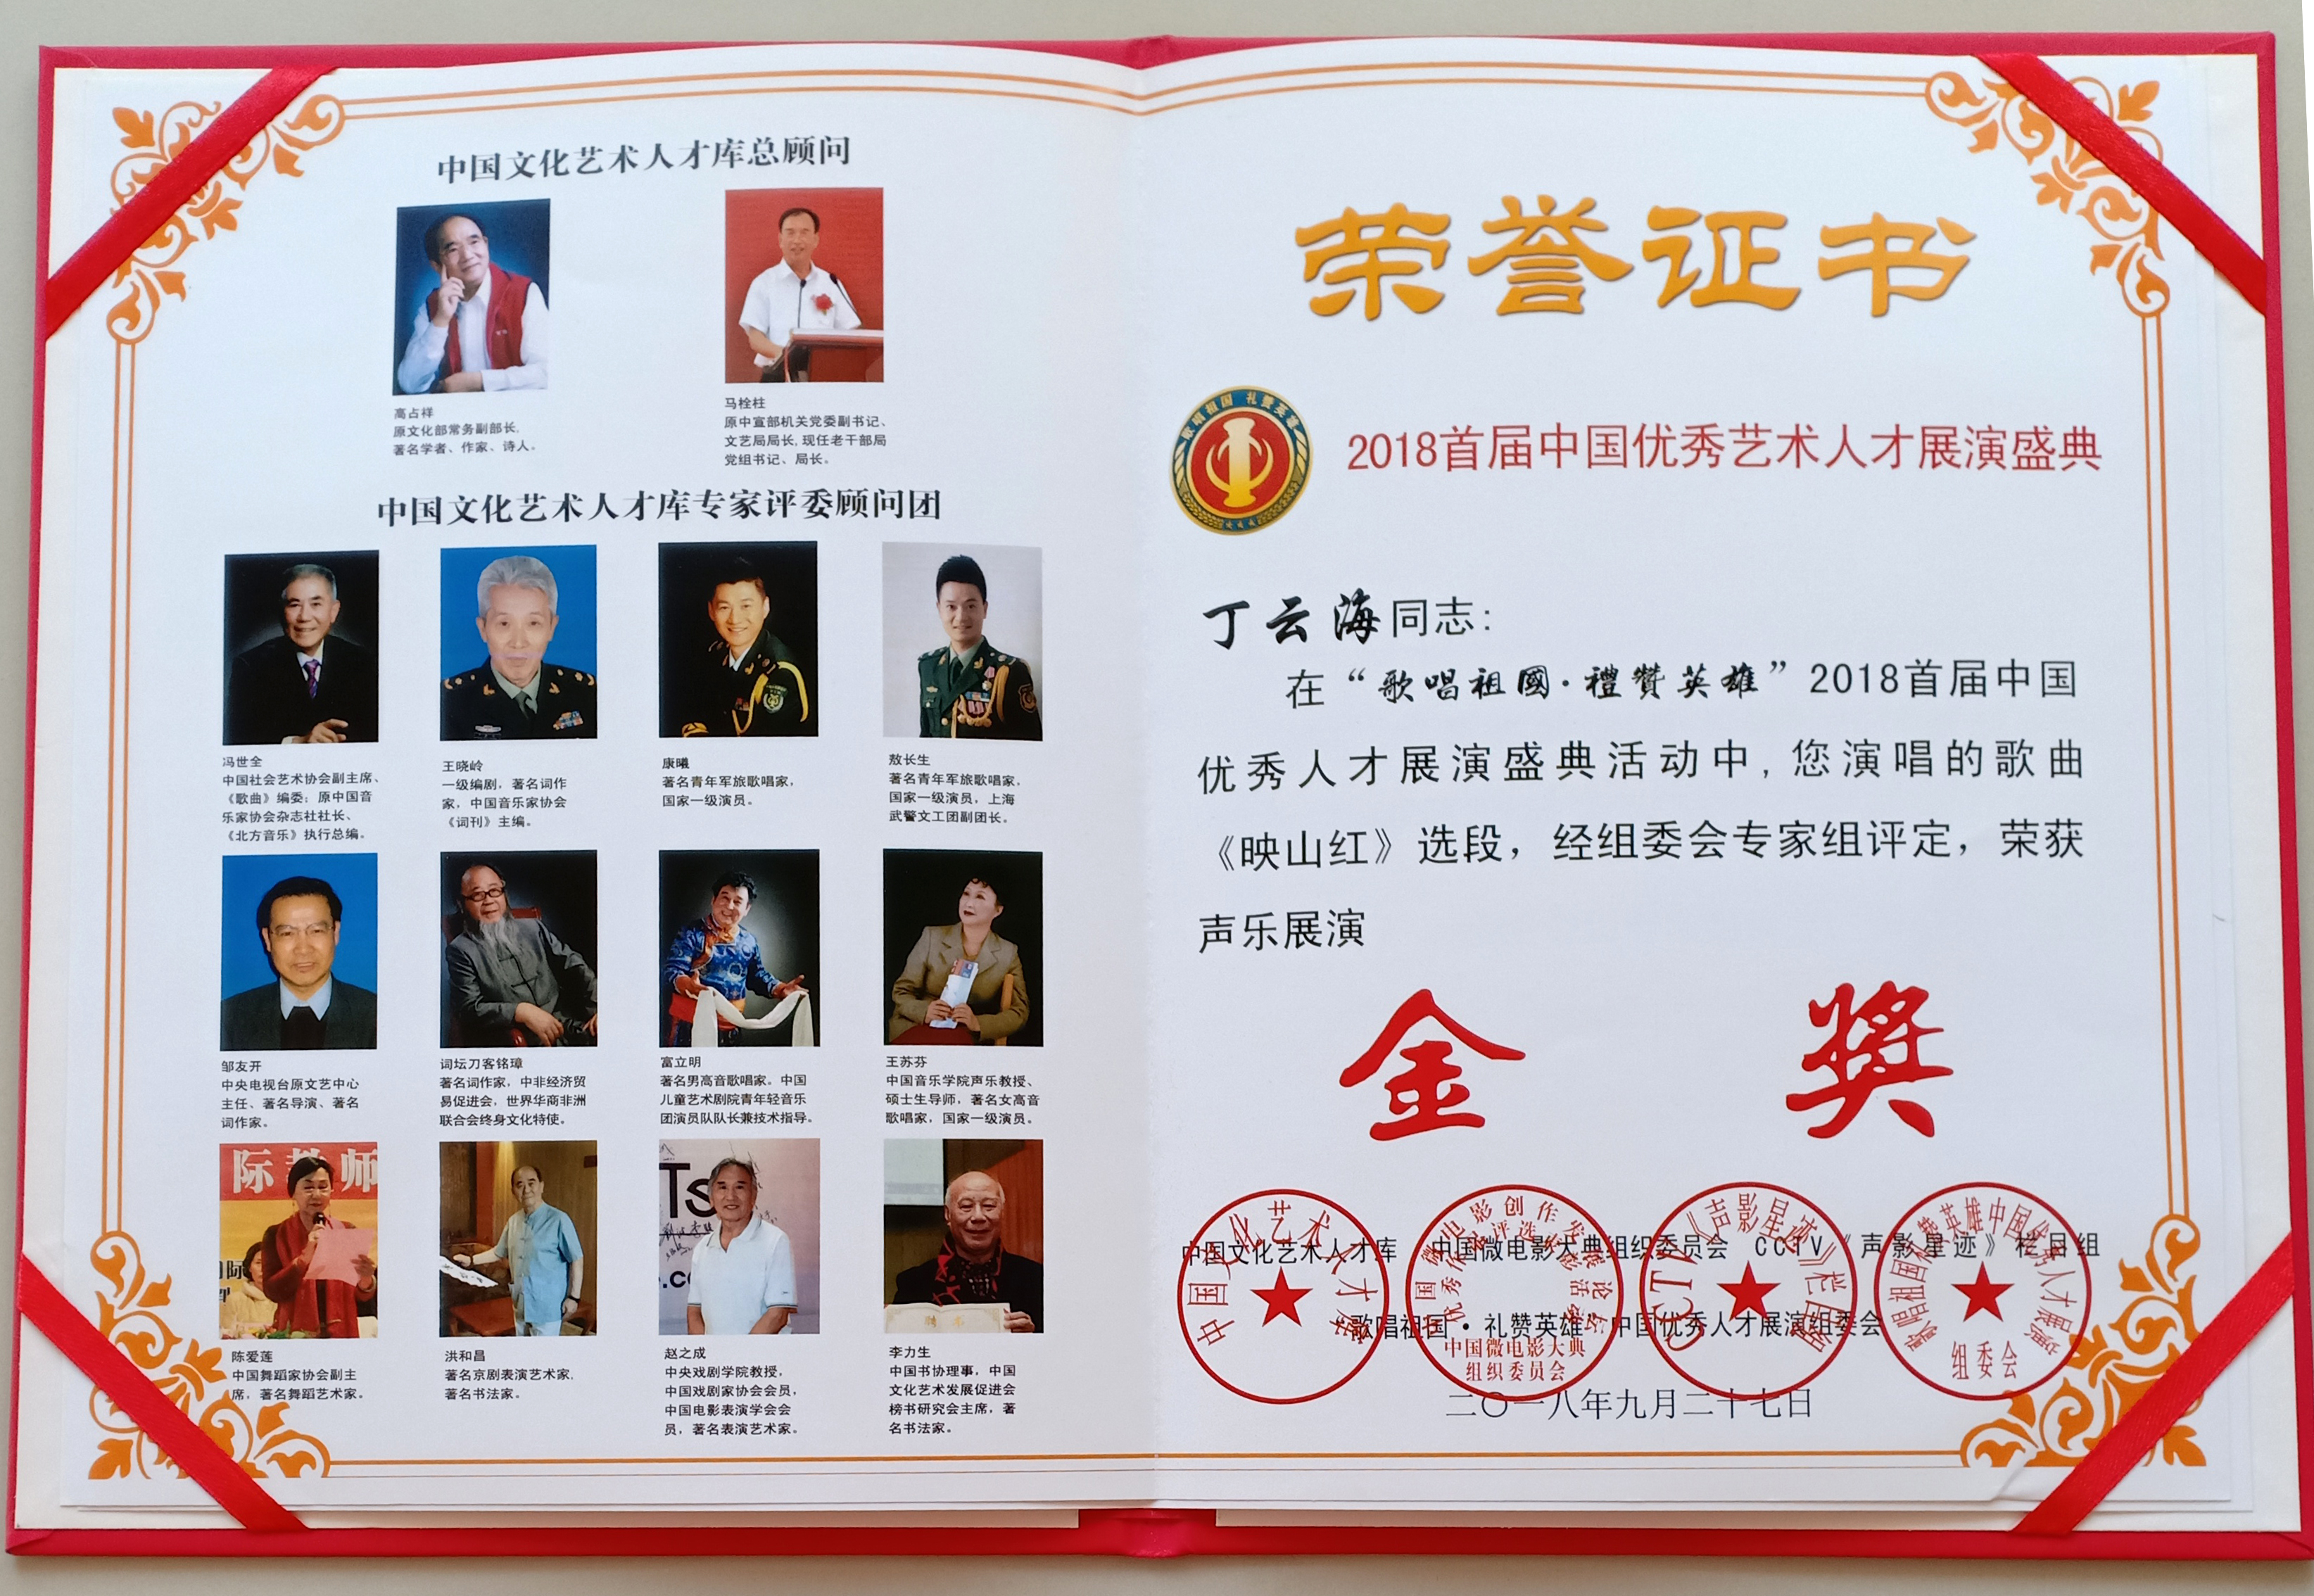 中国文化艺术人才库总顾问
高占祥
原文化部常务副部长,
著名学者、作家、诗人。
马栓柱
原中宣部机关党委副书记、
文艺局局长,现任老干部局
党组书记、局长。
中国文化艺术人才库专家评委顾问团
冯世全
中国社会艺术协会副主席、
《歌曲》编委；原中国音
乐家协会杂志社社长、
《北方音乐》执行总编。
王晓岭
一级编剧，著名词作
家，中国音乐家协会
《词刊》主编。
康曦
著名青年军旅歌唱家，
国家一级演员。
敖长生
著名青年军旅歌唱家，
国家一级演员，上海
武警文工团副团长。
邹友开
中央电视台原文艺中心
主任、著名导演、著名
词作家。
词坛刀客铭璋
著名词作家，中非经济贸
易促进会，世界华商非洲
联合会终身文化特使。
富立明
著名男高音歌唱家。中国
儿童艺术剧院青年轻音乐
团演员队队长兼技术指导。
王苏芬
中国音乐学院声乐教授、
硕士生导师，著名女高音
歌唱家，国家一级演员。
际教师
陈爱莲
中国舞蹈家协会副主
席，著名舞蹈艺术家。
洪和昌
著名京剧表演艺术家,
著名书法家。
赵之成
中央戏剧学院教授，
中国戏剧家协会会员，
中国电影表演学会会
员，著名表演艺术家。
李力生
中国书协理事，中国
文化艺术发展促进会
榜书研究会主席，著
名书法家。
荣誉证书
歌唱祖国 礼赞英雄
2018首届中国优秀艺术人才展演盛典
丁云海同志：
在“歌唱祖國·禮贊英雄”2018首届中国
优秀人才展演盛典活动中，您演唱的歌曲
《映山红》选段，经组委会专家组评定，荣获
声乐展演
金 奖
中国文化艺术人才库 中国微电影大典组织委员会 CCTV《声影星迹》栏目组
歌唱祖国·礼赞英雄 中国优秀人才展演组委会
二〇一八年九月二十七日
中国文化艺术人才库
中国微电影大典
组织委员会
CCTV《声影星迹》栏目组
歌唱祖国礼赞英雄中国优秀人才展演
组委会